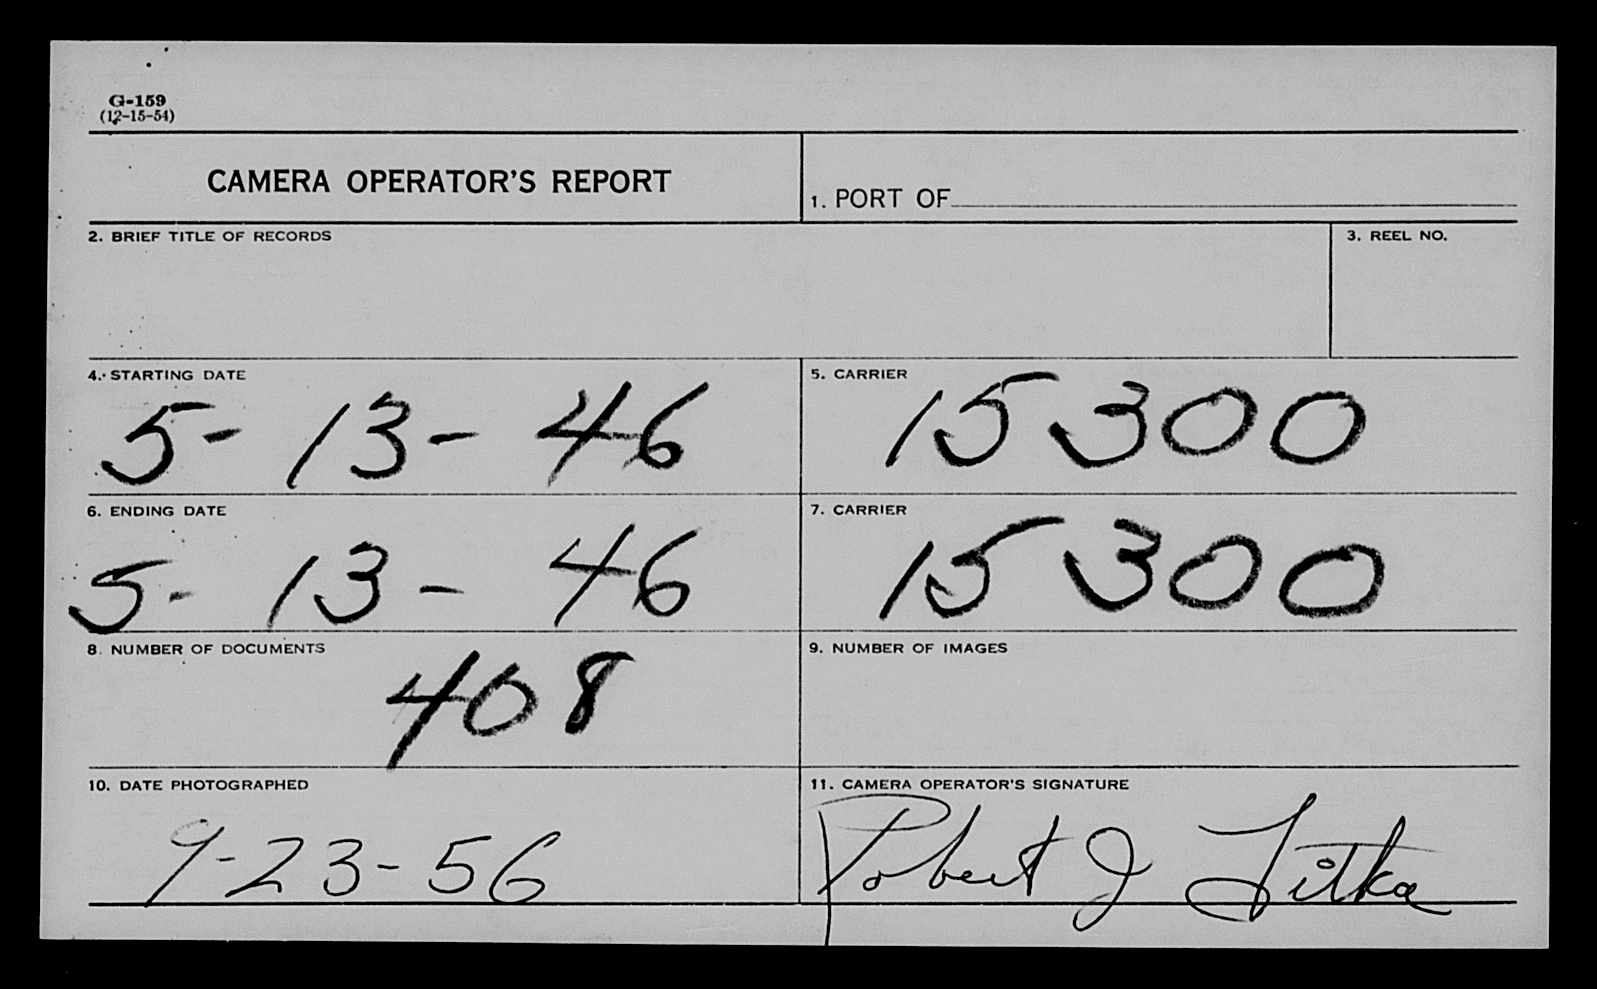 G-159
(12-15-54)
CAMERA OPERATOR'S REPORT
1. PORT OF
2. BRIEF TITLE OF RECORDS
3. REEL NO.
4. STARTING DATE
5- 13- 46
5. CARRIER
15300
6. ENDING DATE
5- 13- 46
7. CARRIER
15300
8. NUMBER OF DOCUMENTS
408
9. NUMBER OF IMAGES
10. DATE PHOTOGRAPHED
9-23-56
11. CAMERA OPERATOR'S SIGNATURE
Robert J Litka